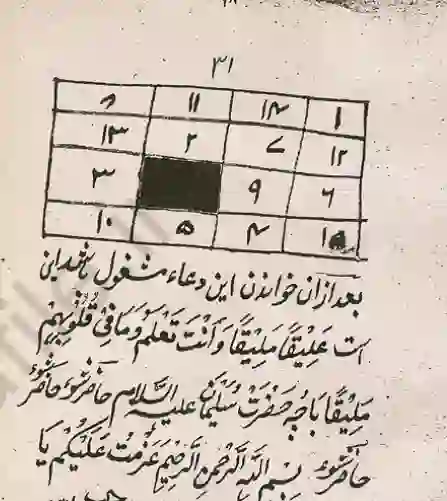 ۳۱
۸ ۱۱ ۱۴ ۱
۱۳ ۲ ۷ ۱۲
۳ ۹ ۶
۱۰ ۵ ۴ ۱۵
بعد ازان خواندن این دعاء مشغول باشد این
است عَلِیْقًا مَلِیْقًا وَاَنْتَ تَعْلَمُ وَمَا فِیْ قُلُوْبِهِمْ
مَلِیْقًا بَاجِهِ حَضْرَتْ سُلَیْمَان علیہ السَّلام حاضر شَوْ حَاضِرْ شَوْ
حاضر شَوْ بِسْمِ اللّٰهِ الرَّحْمٰنِ الرَّحِیْمِ عَزَمْتُ عَلَیْکُمْ یَا